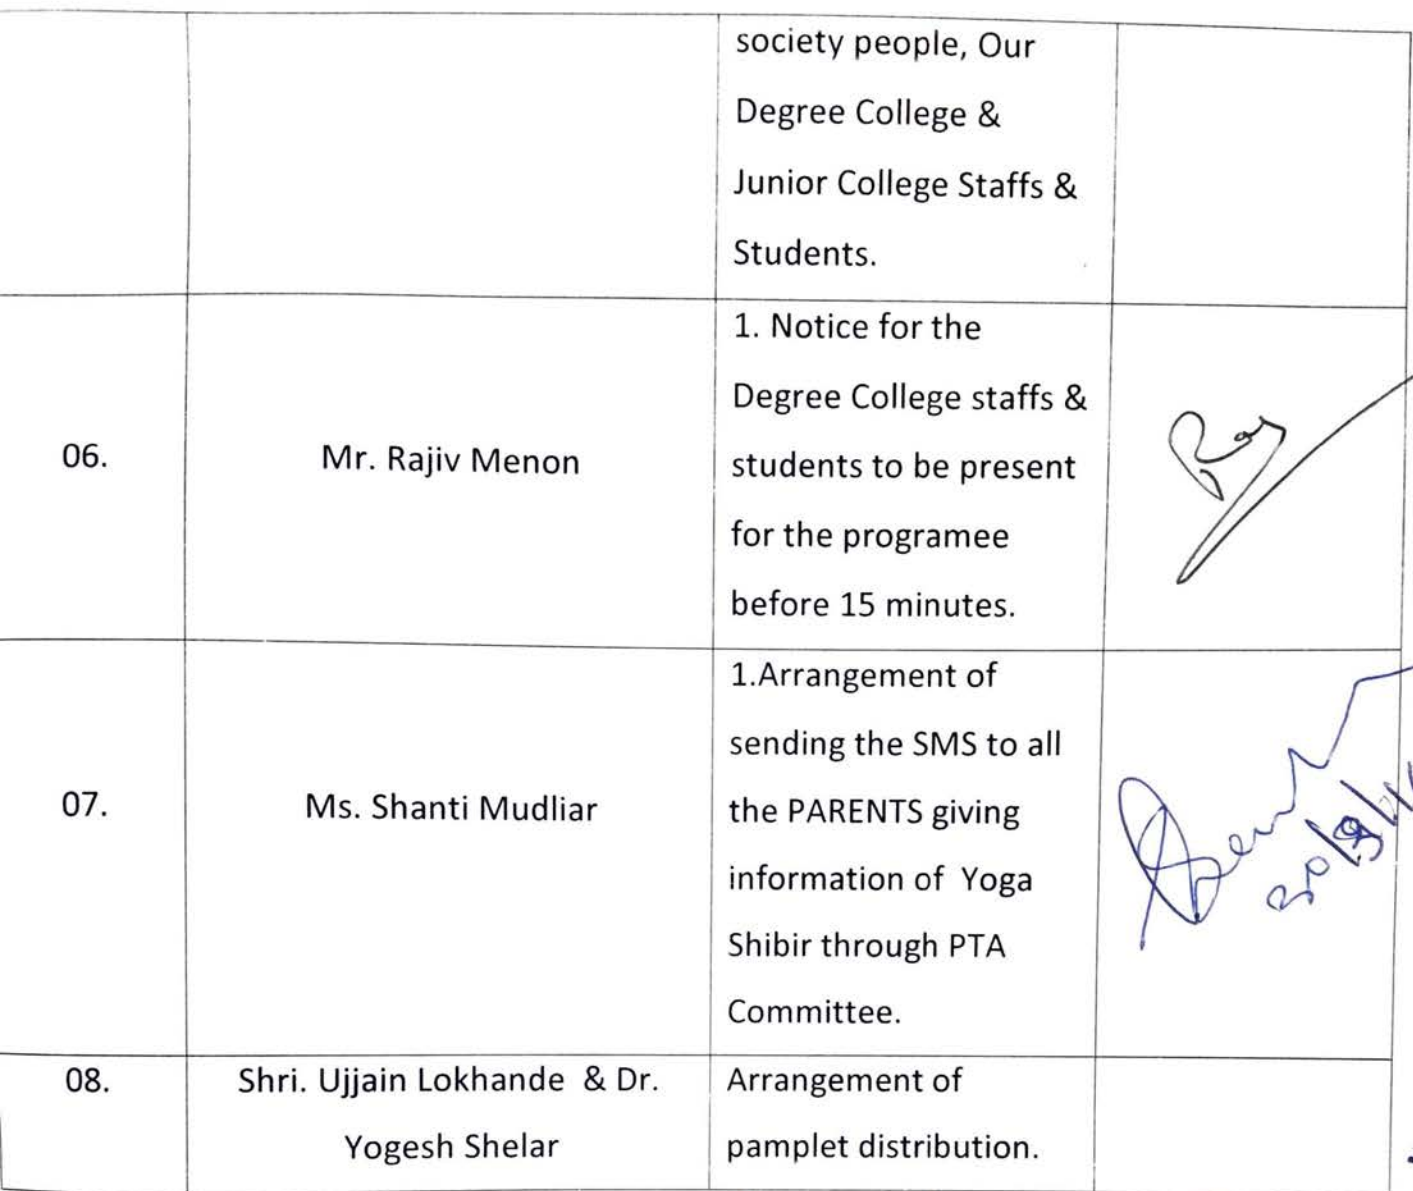 society people, Our
Degree College &
Junior College Staffs &
Students.
06.
Mr. Rajiv Menon
1. Notice for the
Degree College staffs &
students to be present
for the programee
before 15 minutes.
07.
Ms. Shanti Mudliar
1.Arrangement of
sending the SMS to all
the PARENTS giving
information of Yoga
Shibir through PTA
Committee.
08.
Shri. Ujjain Lokhande & Dr.
Yogesh Shelar
Arrangement of
pamplet distribution.